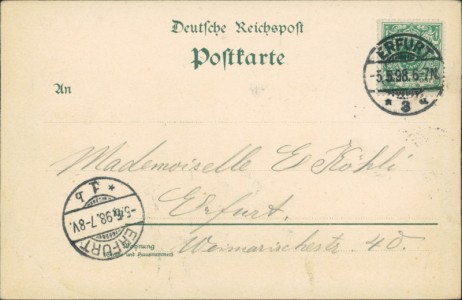 Deutsche Reichspost
Postkarte
An
ERFURT
5.5.98.6-7N.
* 3 a
Mademoiselle E Köhli
Erfurt.
Weimarischestr. 40.
ERFURT
-5/5.98.7-8V.
* 1 b
Wohnung
(Straße und Hausnummer)